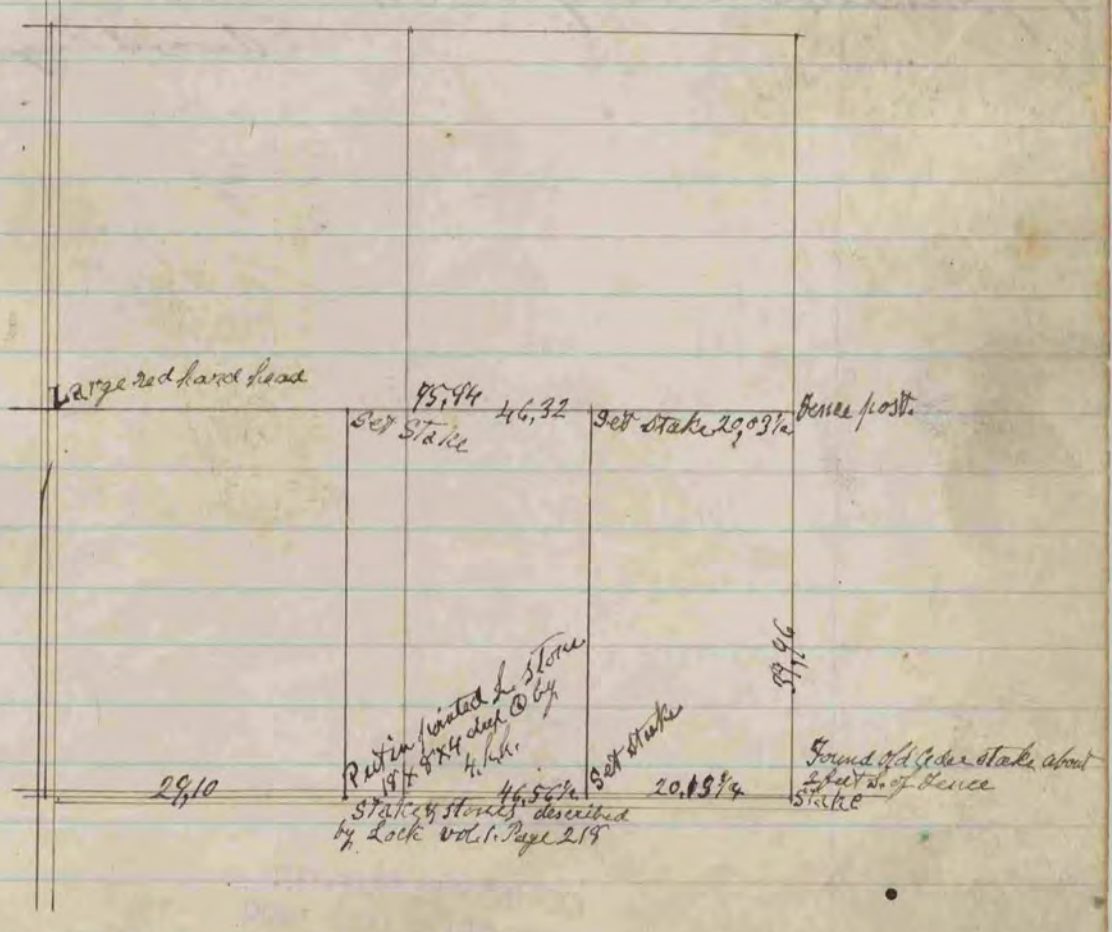 Large red hard head
75,94
46,32
Set Stake
Set stake 20,03½
Fence post.
39,96
Put in pointed L. Stone
18 x 8 x 4 deep @ by
4. h.h.
Set stake
Found old Cedar stake about
2 feet S. of Fence
Stake
29,10
46,56½
20,13¼
Stake & stones described
by Lock vol. 1. Page 218